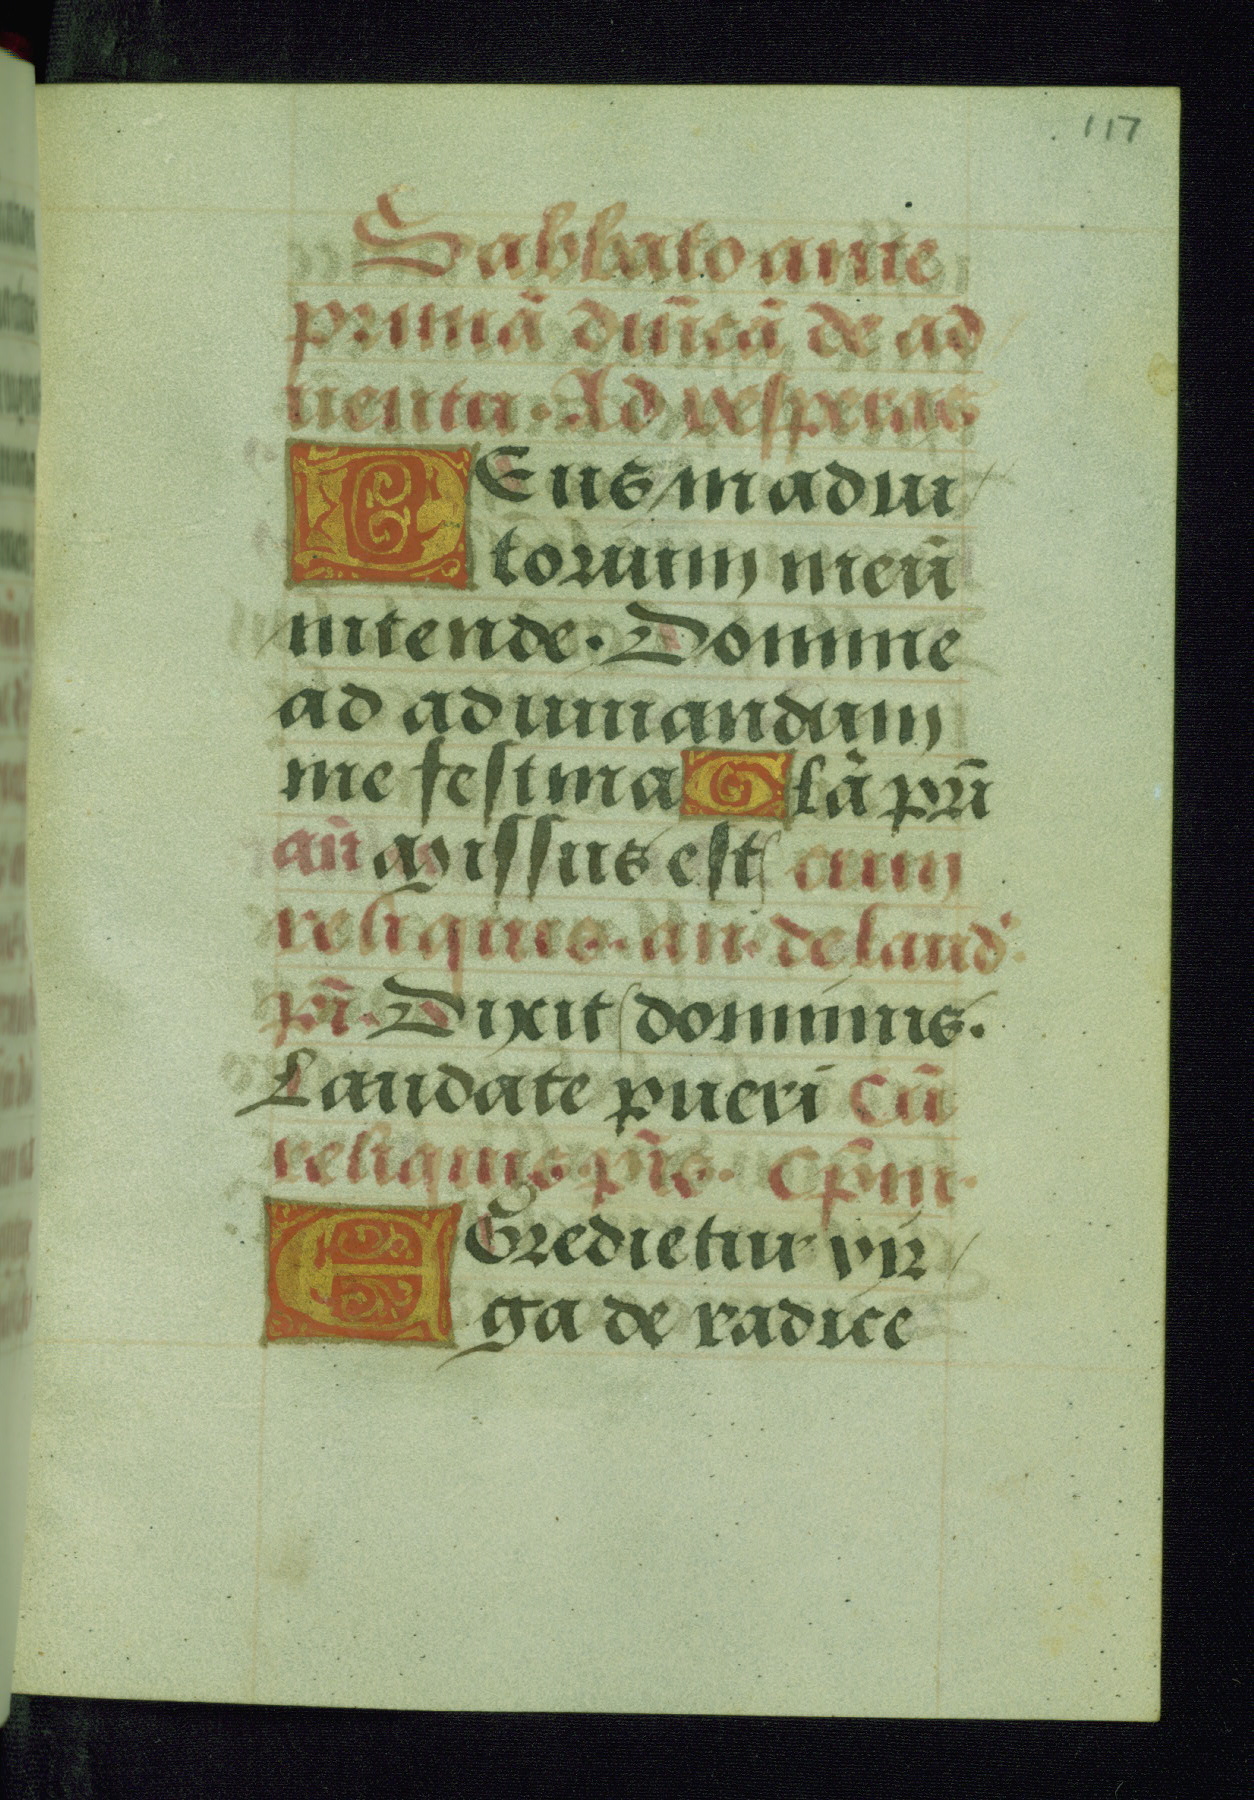 117
Sabbato ante
primā dn̄icā de ad
uentu. Ad vesperas
DEus in adiu
torium meū
intende. Domine
ad adiuuandum
me festina Glā pr̄i
an̄ Missus est cum
reliquis. an. de laud̾.
ps̄. Dixit dominus.
Laudate pueri Cū
reliquis. ps̄. Cp̄m.
EGredietur vir
ga de radice